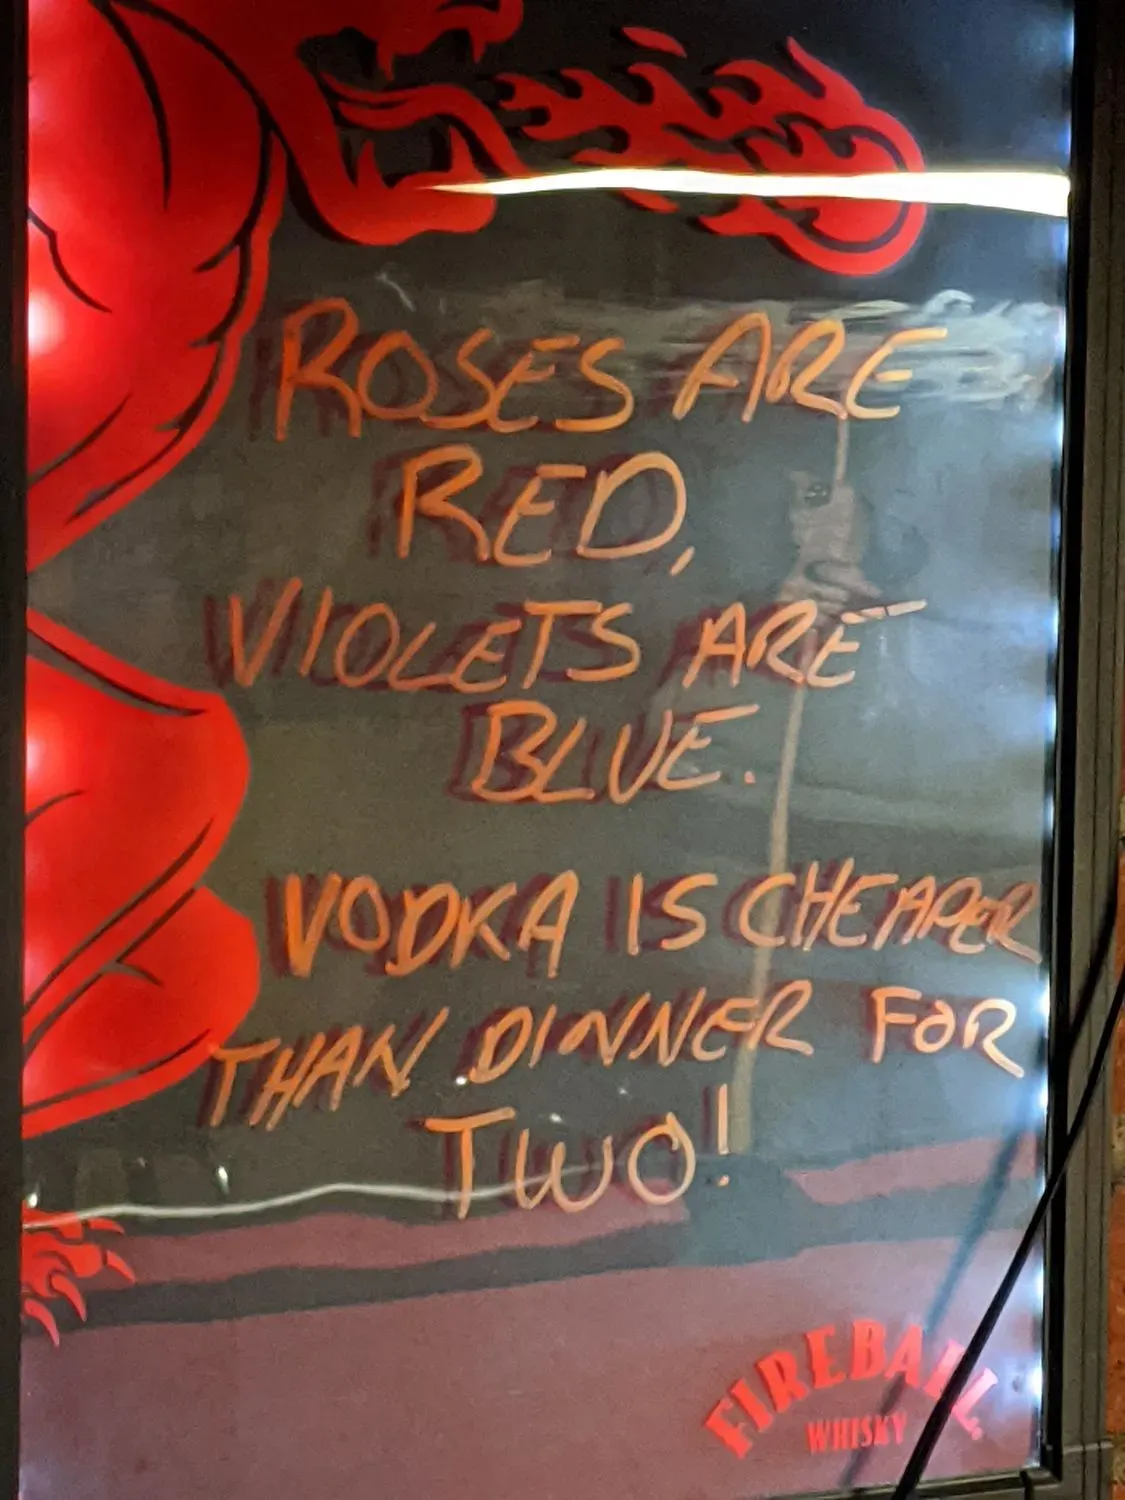 ROSES ARE
RED,
VIOLETS ARE
BLUE.
VODKA IS CHEAPER
THAN DINNER FOR
TWO!
FIREBALL
WHISKY